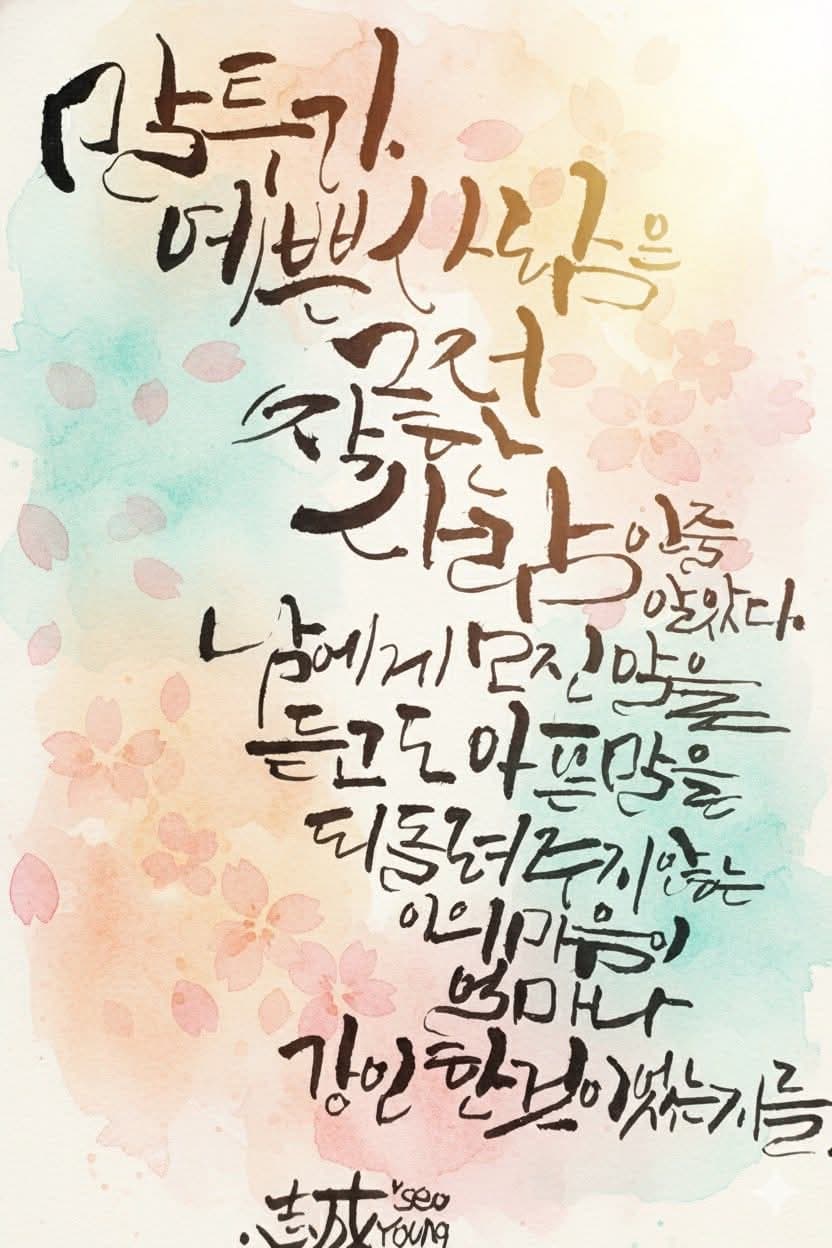 말투가.
예쁜 사람은
사람인줄
알았다.
남에게 모진말을
듣고도 아픈말을
되돌려주지않는
이의 마음이
얼마나
강인한것이었는지를.
志誠 seo
Young